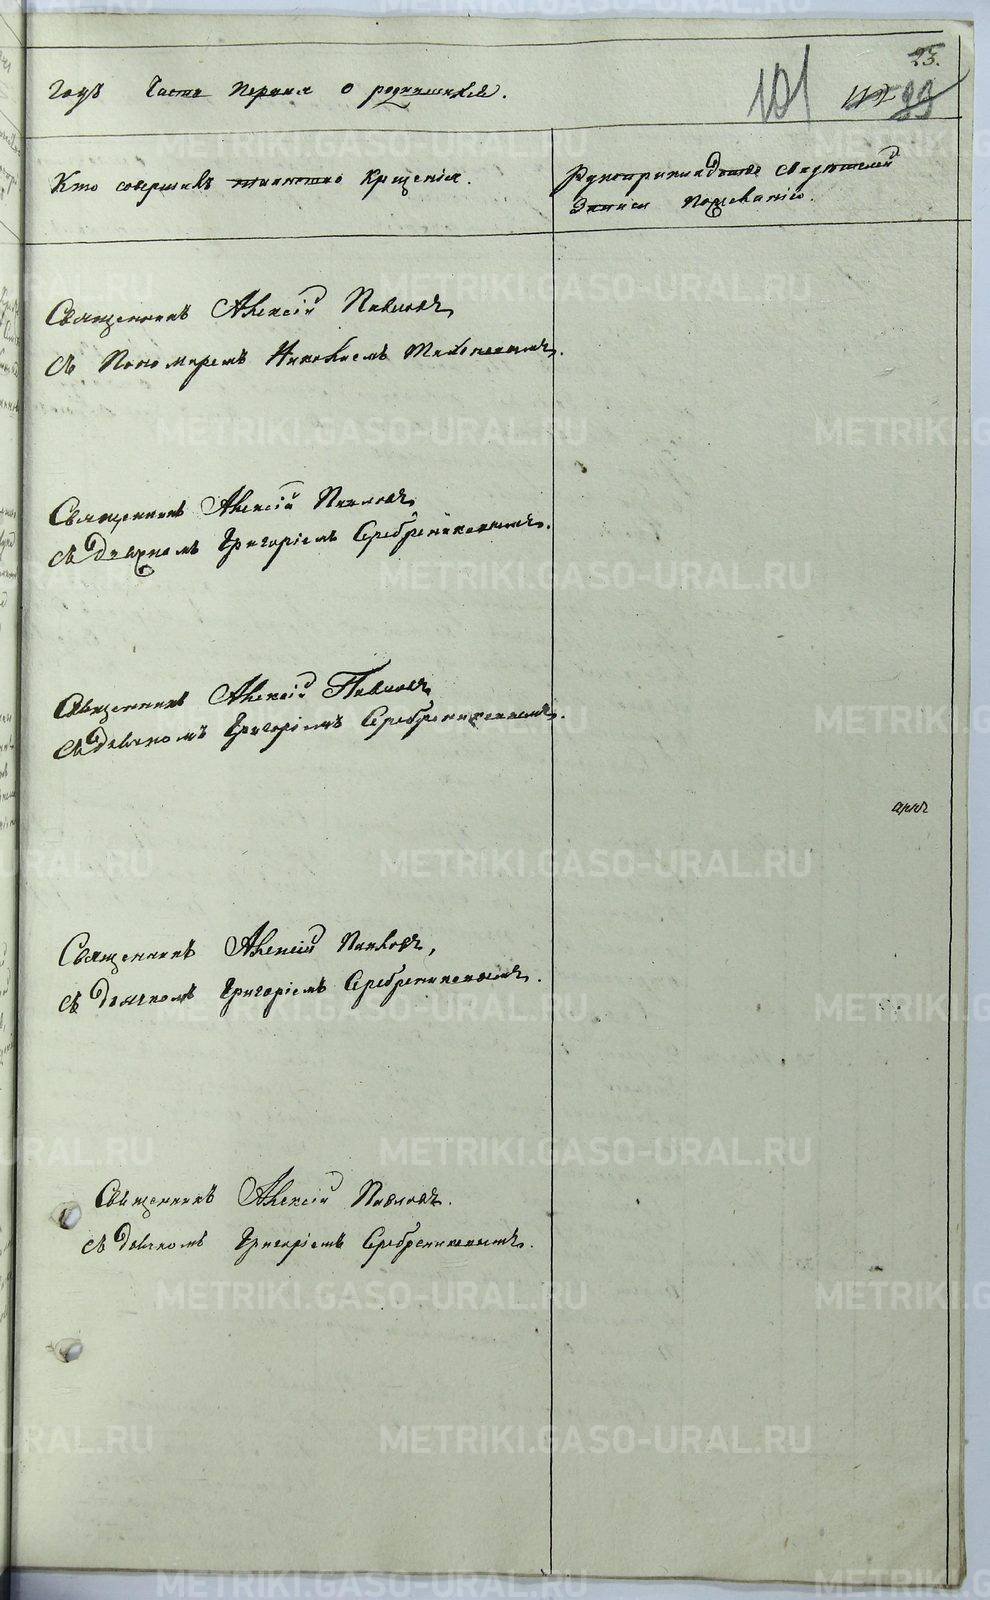 23.
101 99
годъ Часть Первая о родившихся.
Кто совершалъ таинство Крещенія.
Рукоприкладство свидѣтелей
Записи пожеланію.
Священникъ Алексій Павловъ,
съ Пономаремъ Николаемъ
Священникъ Алексій Павловъ,
съ Дьячкомъ Григоріемъ Серебренниковымъ.
Священникъ Алексій Павловъ,
съ Дьячкомъ Григоріемъ Серебренниковымъ.
Священникъ Алексій Павловъ,
съ Дьячкомъ Григоріемъ Серебренниковымъ.
Священникъ Алексій Павловъ.
съ Дьячкомъ Григоріемъ Серебренниковымъ.
METRIKI.GASO-URAL.RU